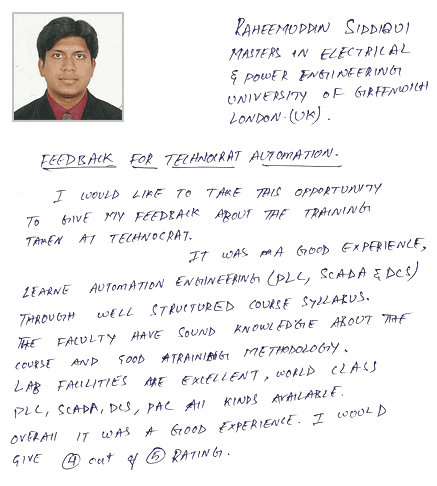 RAHEEMUDDIN SIDDIQUI
MASTERS IN ELECTRICAL
& POWER ENGINEERING
UNIVERSITY OF GREENWICH
LONDON-(UK).
FEEDBACK FOR TECHNOCRAT AUTOMATION.
I WOULD LIKE TO TAKE THIS OPPORTUNITY
TO GIVE MY FEEDBACK ABOUT THE TRAINING
TAKEN AT TECHNOCRAT.
IT WAS A GOOD EXPERIENCE,
LEARNE AUTOMATION ENGINEERING (PLC, SCADA & DCS)
THROUGH WELL STRUCTURED COURSE SYLLABUS.
THE FACULTY HAVE SOUND KNOWLEDGE ABOUT THE
COURSE AND GOOD TRAINING METHODOLOGY.
LAB FACILITIES ARE EXCELLENT, WORLD CLASS
PLC, SCADA, DCS, PAC All KINDS AVAILABLE.
OVERAll IT WAS A GOOD EXPERIENCE. I WOULD
GIVE 4 out of 5 RATING.